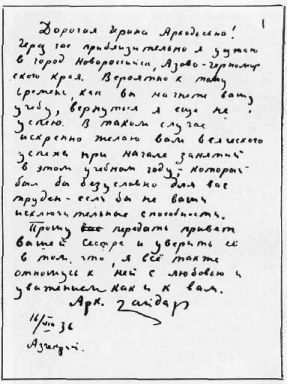 1
Дорогая Ирина Аркадьевна!
Через час приблизительно я уезжаю
в город Новороссийск, Азово-Черномор
ского края. Вероятно к тому
времени, как вы начнете вашу
учебу, вернуться я еще не
успею. В таком случае
искренно желаю вам всяческого
успеха при начале занятий
в этом учебном году - который
был бы безусловно для вас
труден - если бы не ваши
исключительные способности.
Прошу передать привет
вашей сестре и уверить её
в том, что я всё также
отношусь к ней с любовью и
уважением как и к вам.
Арк. Гайдар
16/VIII 36